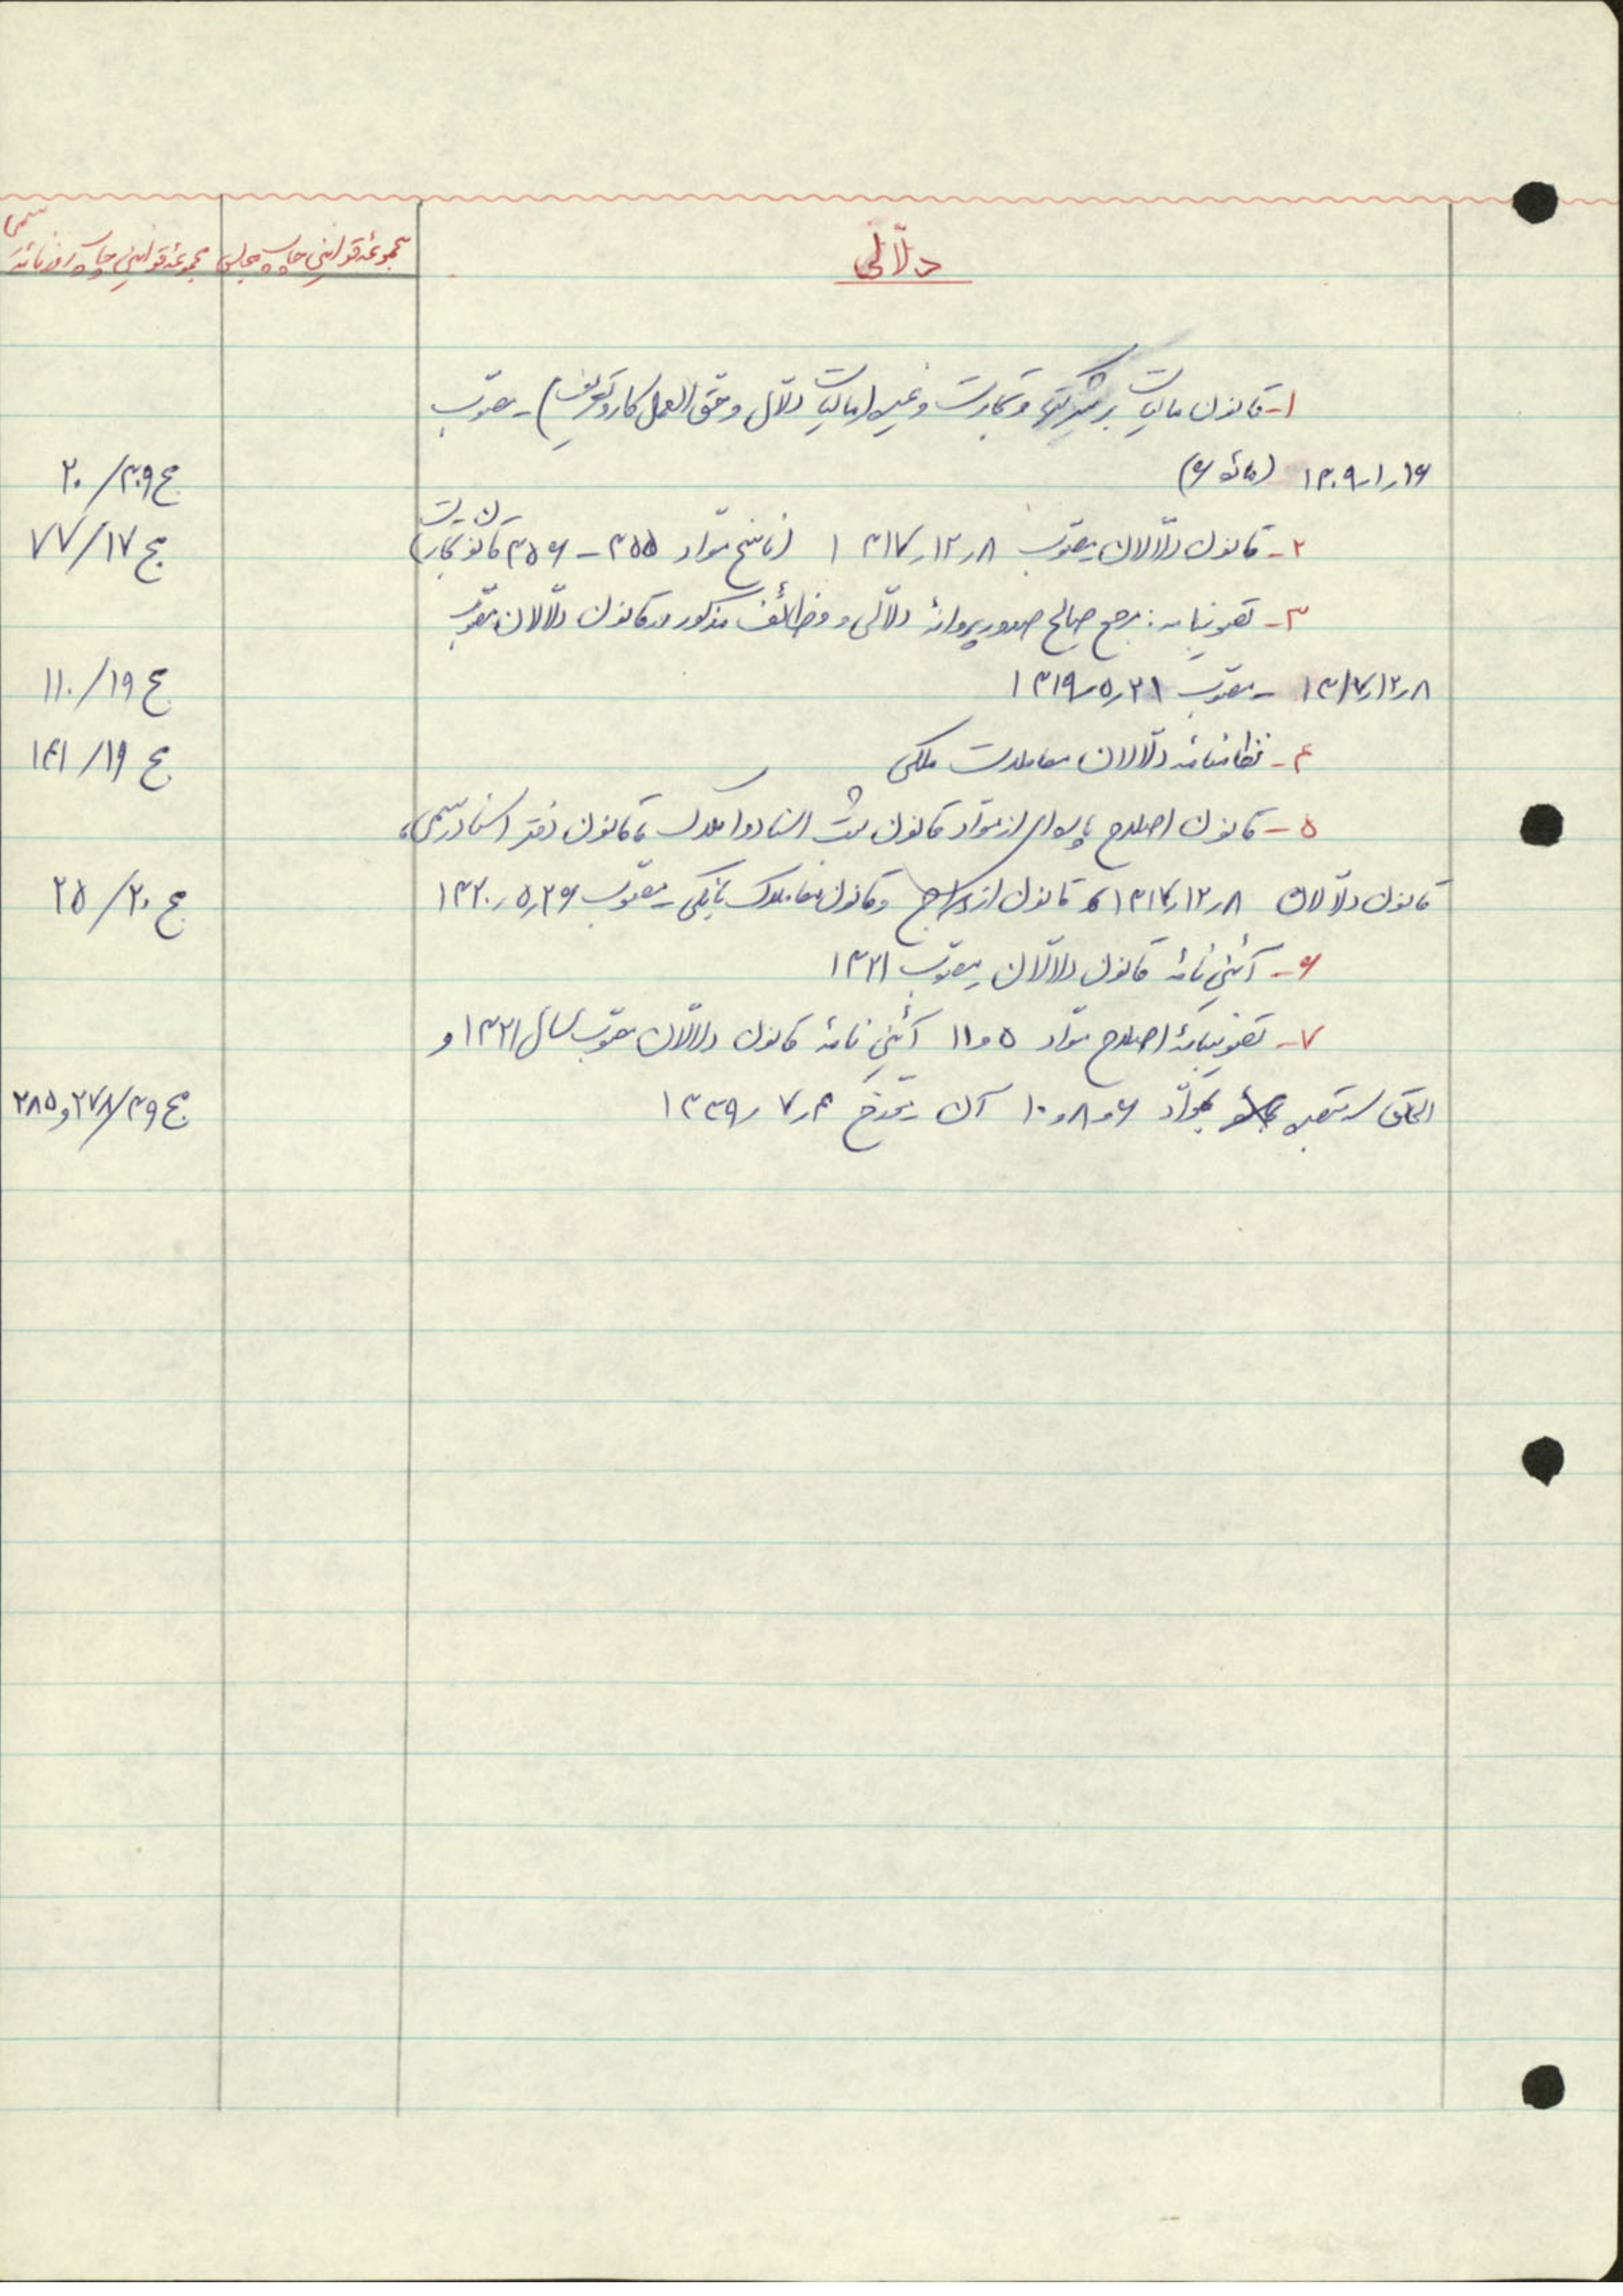 دلّالی
مجموعهٔ قوانین چاپ مجلس
مجموعهٔ قوانین چاپ روزنامهٔ رسمی
۱- قانون مالیات بر شرکتها و تجارت و غیره (مالیات دلّال و حق العمل کار و تعریف) - مصوّب
۱۳۰۹/۱/۱۶ (مادهٔ ۶) مج ۳۰۹/۲۰
۲- قانون دلّالان مصوّب ۱۳۱۷/۱۲/۸ (ناسخ موّاد ۳۵۵ - ۳۵۶ قانون تجارت) مج ۱۷/۷۷
۳- تصویبنامه: مرجع صالح صدور پروانهٔ دلّالی و وظائف مذکور در قانون دلّالان مصوّب
۱۳۱۷/۱۲/۸ - مصوّب ۱۳۱۹/۵/۲۱ مج ۱۹/۱۱۰
۴- نظامنامه دلّالان معاملات ملکی مج ۱۹/۱۴۱
۵- قانون اصلاح پاره‌ای از موّاد قانون ثبت اسناد و املاک، قانون دفتر اسناد رسمی،
قانون دلّالان ۱۳۱۷/۱۲/۸ قانون ازدواج و قانون معاملات بانکی - مصوّب ۱۳۲۰/۵/۲۶ مج ۲۰/۲۵
۶- آئین نامهٔ قانون دلّالان مصوّب ۱۳۲۱
۷- تصویبنامهٔ اصلاح موّاد ۵ و ۱۱ آئین نامهٔ قانون دلّالان مصوّب سال ۱۳۲۱ و
الحاق سه تبصره بموّاد ۶ و ۸ و ۱۰ آن مورّخ ۱۳۳۹/۷/۴ مج ۳۹/۲۷۸ و ۲۸۵